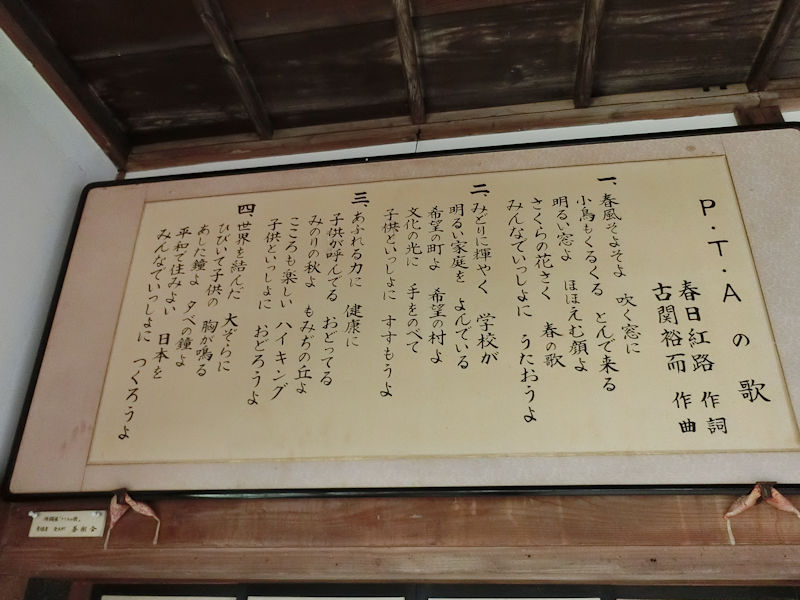 P・T・Aの歌
春日紅路 作詞
古関裕而 作曲
一、春風そよそよ 吹く窓に
小鳥もくるくる とんで来る
明るい窓よ ほほえむ顔よ
さくらの花さく 春の歌
みんなでいっしょに うたおうよ
二、みどりに輝やく 学校が
明るい家庭を よんでいる
希望の町よ 希望の村よ
文化の光に 手をのべて
子供といっしょに すすもうよ
三、あふれる力に 健康に
子供が呼んでる おどってる
みのりの秋よ もみぢの丘よ
こころも楽しい ハイキング
子供といっしょに おどろうよ
四、世界を結んだ 大ぞらに
ひびいて子供の 胸が鳴る
あした鐘よ 夕べの鐘よ
平和で住みよい 日本を
みんなでいっしょに つくろうよ